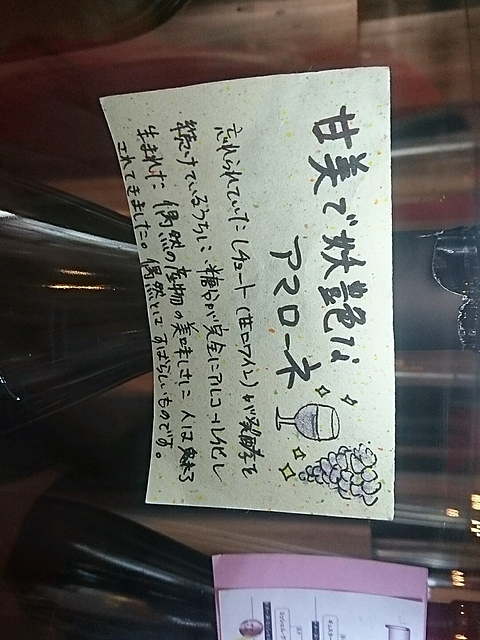 甘美で妖艶な
アマローネ
忘れられていたレチョート(甘口ワイン)が発酵を
続けているうちに、糖分が完全にアルコール化し
生まれた偶然の産物の美味しさに人は魅了
されてきました。偶然とはすばらしいものです。